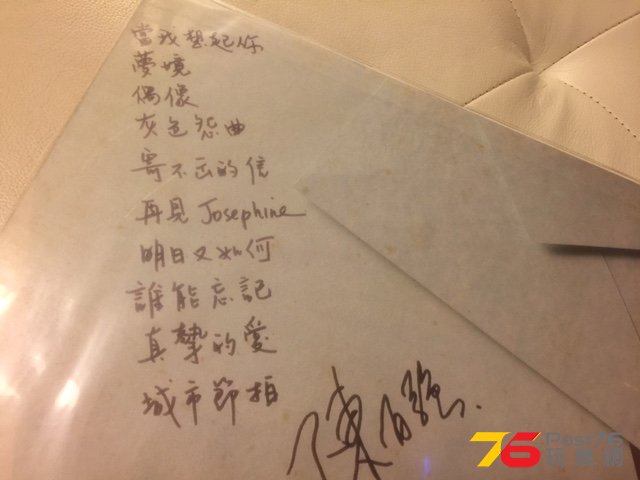 當我想起你
夢境
偶像
灰色怨曲
寄不出的信
再見 Josephine
明日又如何
誰能忘記
真摯的愛
城市節拍
陳百強
76
Post76
玩樂網